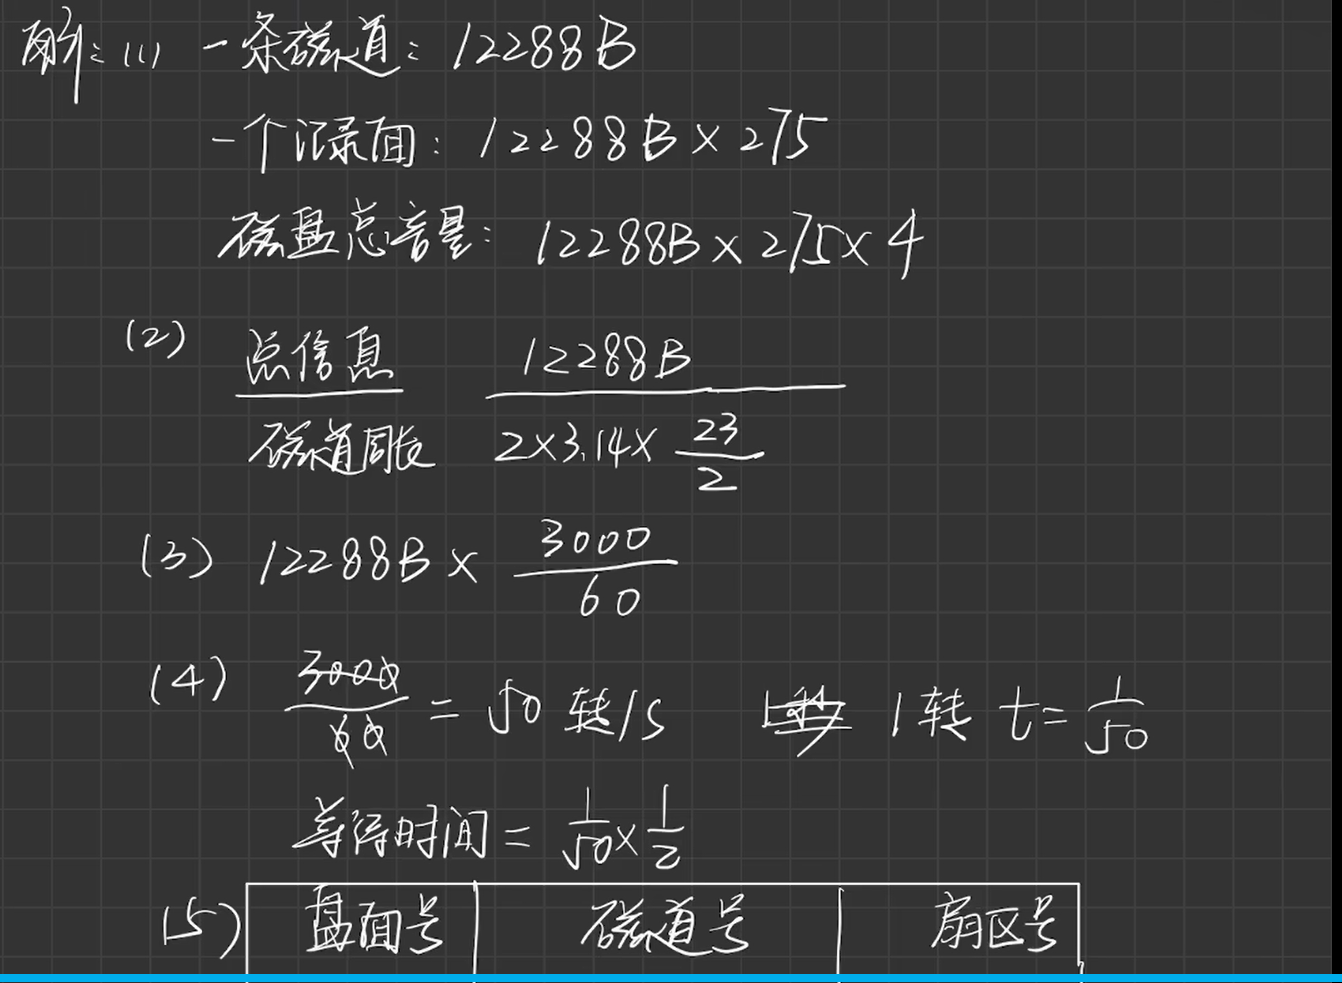 解:(1) 一条磁道: 12288B
一个记录面: 12288B × 275
磁盘总容量: 12288B × 275 × 4
(2) 总信息 / 磁道周长 12288B / 2×3.14× 23/2
(3) 12288B × 3000/60
(4) 3000/60 = 50 转/s 1转 t= 1/50
等待时间 = 1/50 × 1/2
(5) 盘面号 磁道号 扇区号